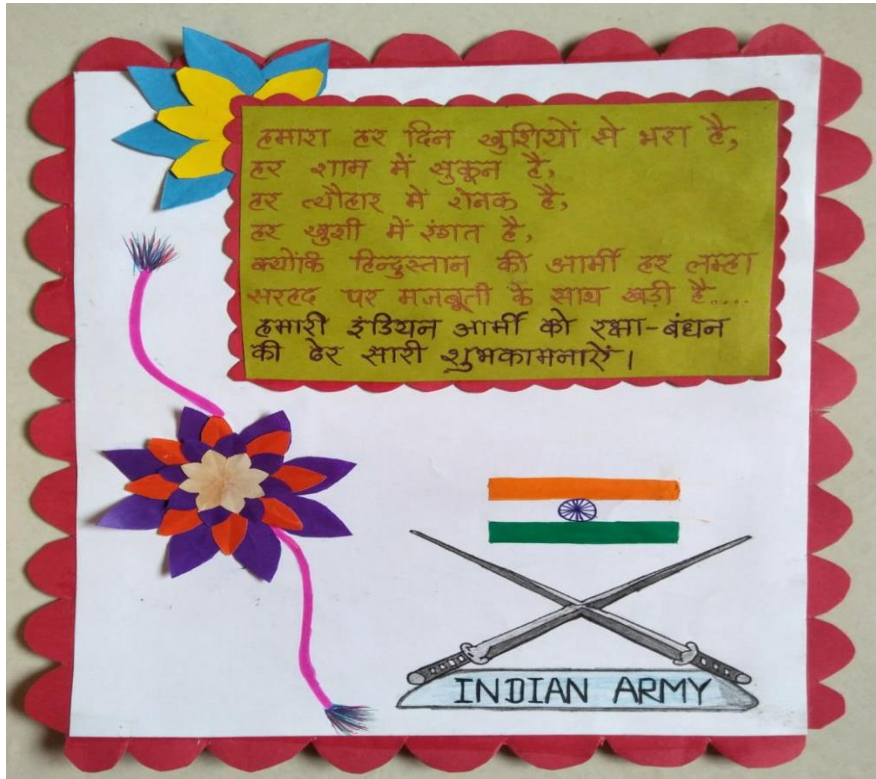 हमारा हर दिन खुशियों से भरा है,
हर शाम में सुकून है,
हर त्यौहार में रोनक है,
हर खुशी में रंगत है,
क्योंकि हिन्दुस्तान की आर्मी हर लम्हा
सरहद पर मजबूती के साथ खड़ी है....
हमारी इंडियन आर्मी को रक्षा-बंधन
की ढेर सारी शुभकामनाऐं।
INDIAN ARMY